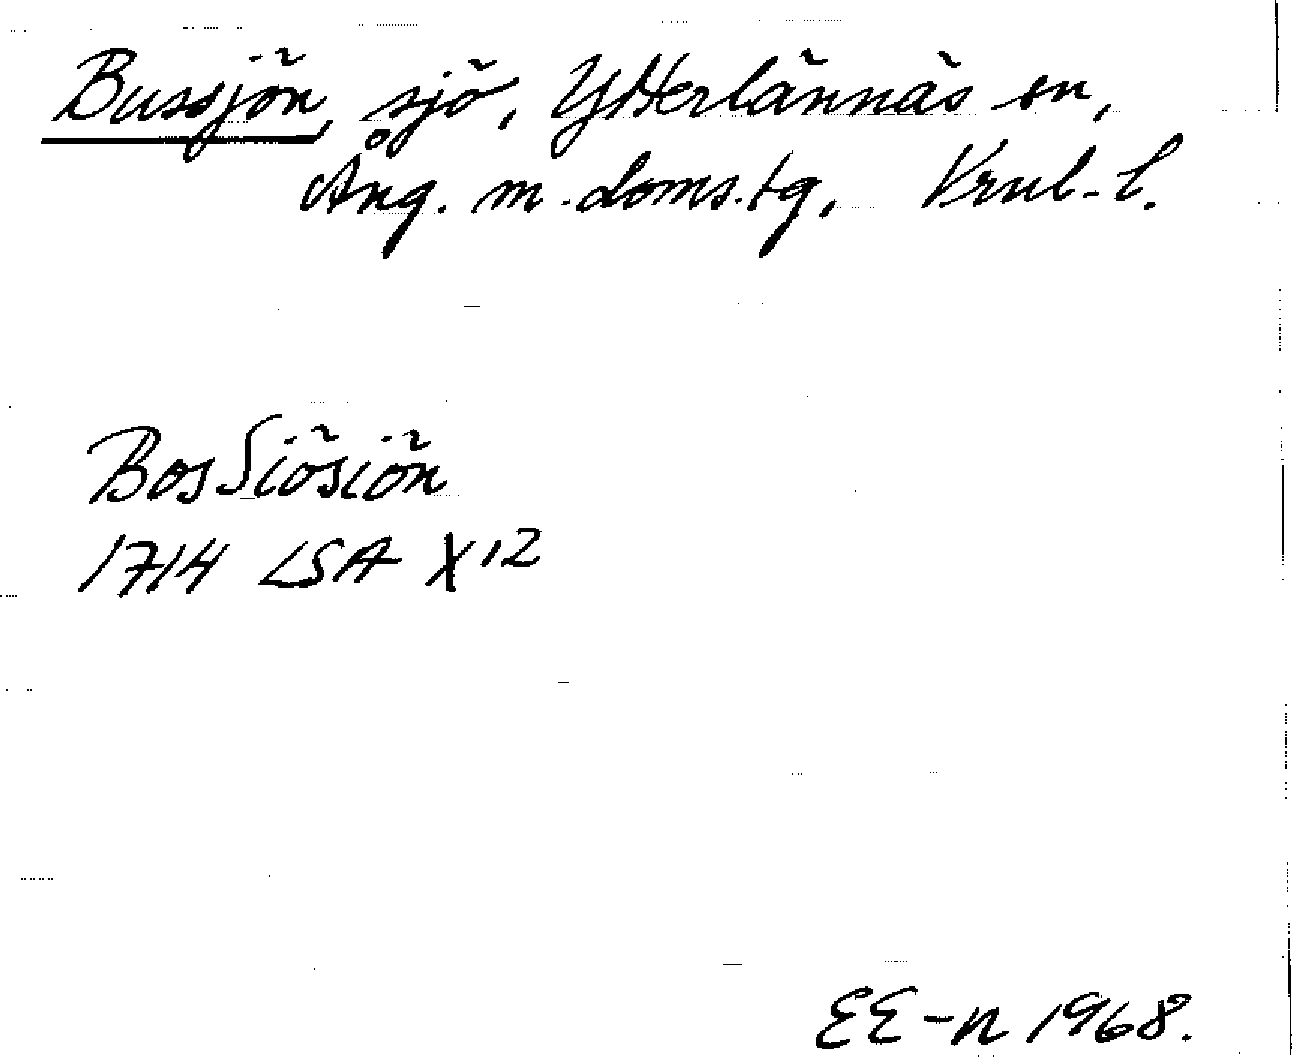 Bussjön, sjö, Ytterlännäs sn,
Ång. m. doms.tg, Vrnl. l.
BosSiösiön
1714 LSA X 12
EE-n 1968.